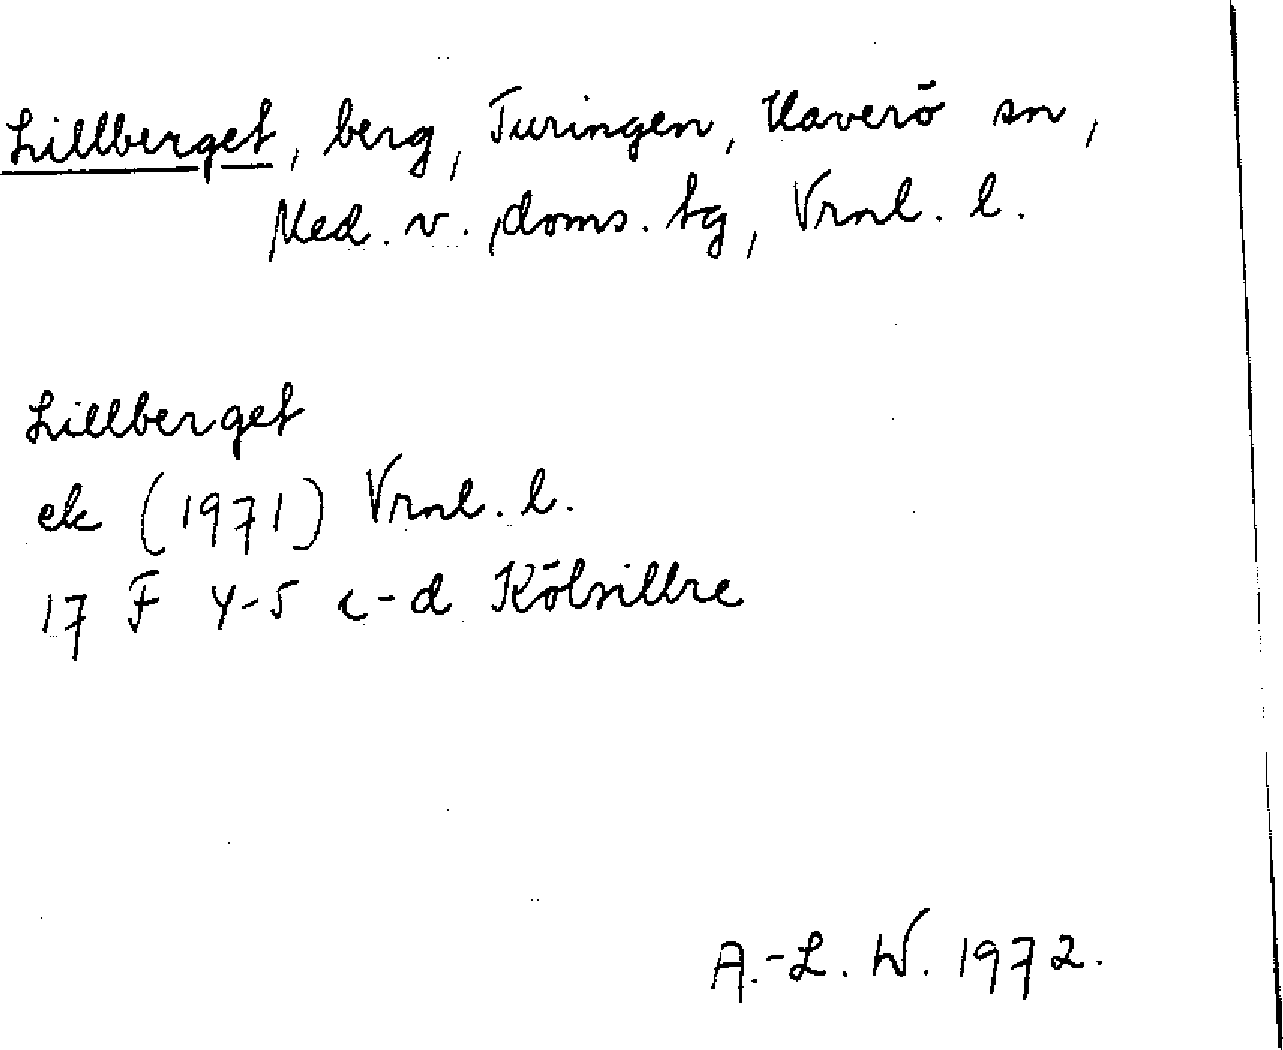 Lillberget, berg, Turingen, Haverö sn,
Med. v. doms. tg, Vrnl. l.
Lillberget
ek (1971) Vrnl. l.
17 F 4-5 c-d Kölsillre
A.-L. W. 1972.